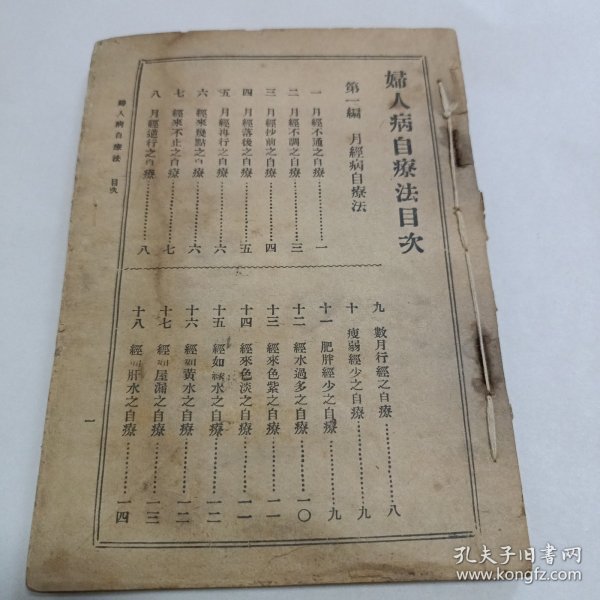 婦人病自療法目次
第一編 月經病自療法
一 月經不通之自療…………一
二 月經不調之自療…………三
三 月經抄前之自療…………四
四 月經落後之自療…………五
五 月經再行之自療…………六
六 經來幾點之自療…………六
七 經來不止之自療…………七
八 月經逆行之自療…………八
九 數月行經之自療…………八
十 瘦弱經少之自療…………九
十一 肥胖經少之自療…………九
十二 經水過多之自療…………一〇
十三 經來色紫之自療…………一一
十四 經來色淡之自療…………一一
十五 經如綠水之自療…………一二
十六 經如黃水之自療…………一二
十七 經如屋漏之自療…………一三
十八 經如肝水之自療…………一四
婦人病自療法 目次
一
孔夫子旧书网
www.kongfz.com